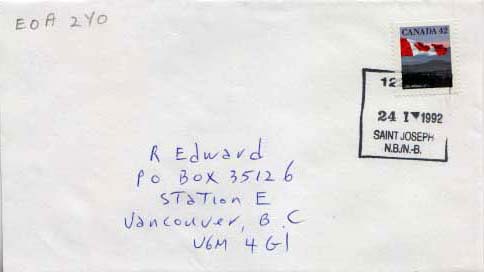 EOA 2YO
CANADA 42
12
24 IV 1992
SAINT JOSEPH
N.B./N.-B.
R Edward
PO BOX 35126
STATION E
Vancouver, B.C
V6M 4G1